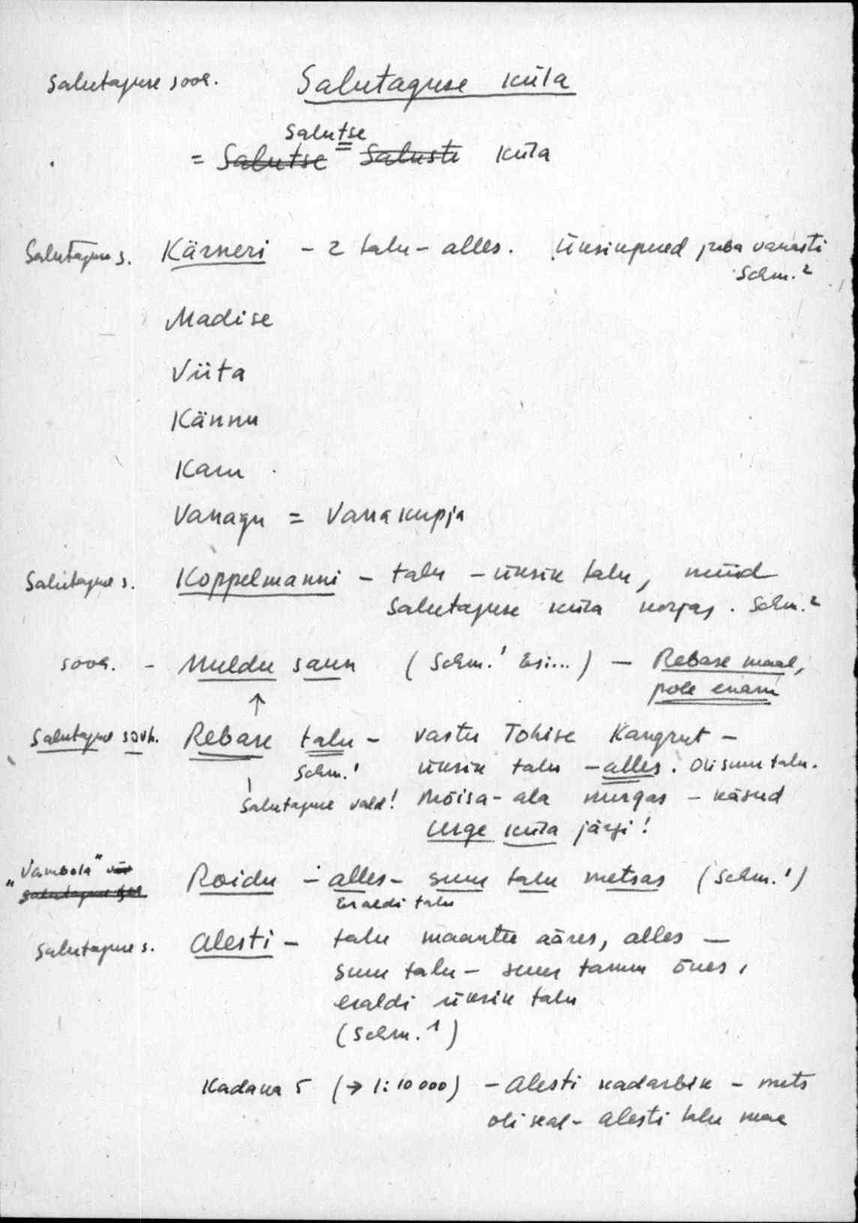 Salutaguse sooh. Salutaguse küla
Salutse
= Salutse = Saluste küla
Salutaguse s. Kärneri - 2 talu - alles. Üksikpered juba vanasti
Schm.²
Madise
Viita
Kännu
Karu
Vanagu = Vanakupja
Salutaguse s. Koppelmanni - talu - üksik talu, nüüd
Salutaguse küla norgas. Schm.²
sooh. - Muldu saun (Schm.¹ Esi...) - Rebase maal,
pole enam
↑
Salutaguse sovh. Rebase talu - vastu Tohise Kangrut -
Schm.¹ üksik talu - alles. Oli suur talu.
Salutaguse vald! Mõisa-ala nurgas - käsud
Urge küla järgi!
"Vambola" Roidu - alles - suur talu metsas (Schm.¹)
Eraldi talu
Salutaguse s. Alesti - talu maantee ääres, alles -
suur talu - suur tamm õues,
eraldi üksik talu
(Schm.¹)
Kadaka 5 (→ 1:10 000) - Alesti kadarbik - mets
oli seal - Alesti talu maa